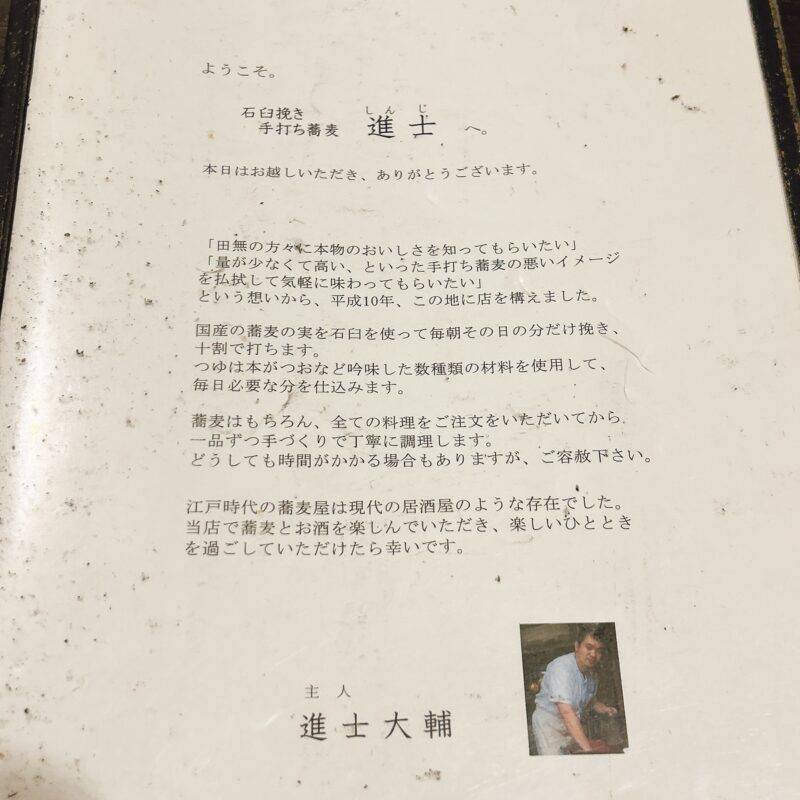 ようこそ。
石臼挽き
手打ち蕎麦
しんじ
進士 へ。
本日はお越しいただき、ありがとうございます。
「田無の方々に本物のおいしさを知ってもらいたい」
「量が少なくて高い、といった手打ち蕎麦の悪いイメージ
を払拭して気軽に味わってもらいたい」
という想いから、平成10年、この地に店を構えました。
国産の蕎麦の実を石臼を使って毎朝その日の分だけ挽き、
十割で打ちます。
つゆは本がつおなど吟味した数種類の材料を使用して、
毎日必要な分を仕込みます。
蕎麦はもちろん、全ての料理をご注文をいただいてから
一品ずつ手づくりで丁寧に調理します。
どうしても時間がかかる場合もありますが、ご容赦下さい。
江戸時代の蕎麦屋は現代の居酒屋のような存在でした。
当店で蕎麦とお酒を楽しんでいただき、楽しいひととき
を過ごしていただけたら幸いです。
主人
進士大輔